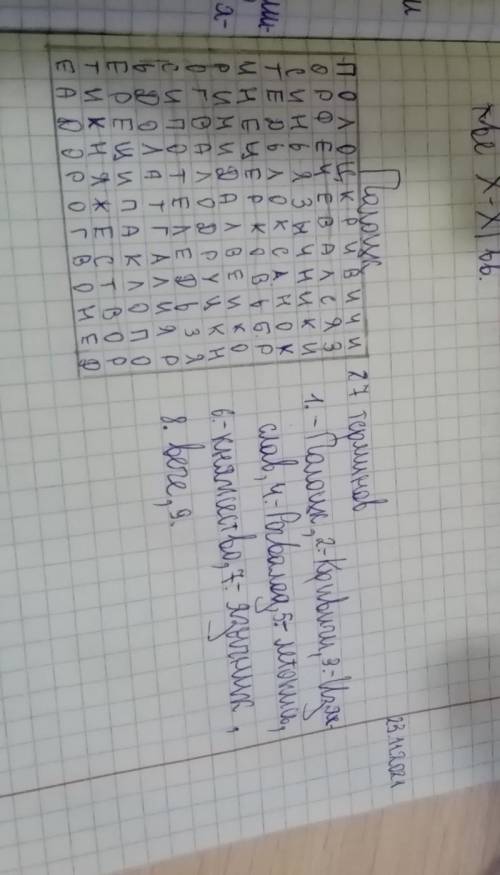 X-XI вв.
Полоцк
П О Л О Ц К Р И В И Ч И
О Р Ф Е Ц Е В А Л С Я З
С И Н Ь Я З Ы Ч Н И К И
Т Е Д Ь Л О К С А Н О К
И Н Е Ц Е Р К О В Ь Б Р
Р И Н И Д А Л В Е И К О
О Г В А Л О Д Р У Ц К Н
С И П О Т Е Л Е Д Ь З Я
Ь Д О Л А Т Г А Л И Я Р
Е Р Е Щ И П А К Л О П О
Т И К Н Я Ж Е С Т В О Р
Е А Д О Р О Г В О Н Е Д
27 терминов
1.- Полоцк, 2-Кривичи, 3.- Изя-
слав, 4.-Рогволод, 5.-
6.- княжество, 7.- язычник,
8. вече, 9.
23.11.2021